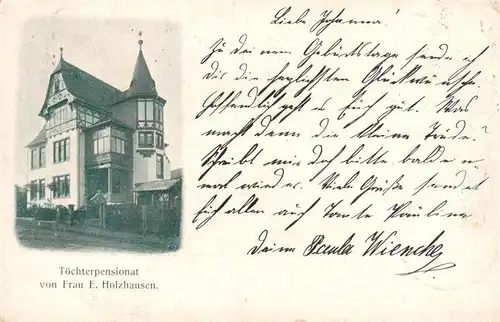 Liebe Johanna!
Zu Deinem Geburtstage sende ich
dir die herzlichsten Glückwünsche.
Hoffentlich geht es Euch gut. Was
macht denn die kleine Trude?
Schreibt mir doch bitte bald ein-
mal wieder. Viele Grüße sendet
Euch allen auch Tante Paulina
Deine Paula
Töchterpensionat
von Frau E. Holzhausen.